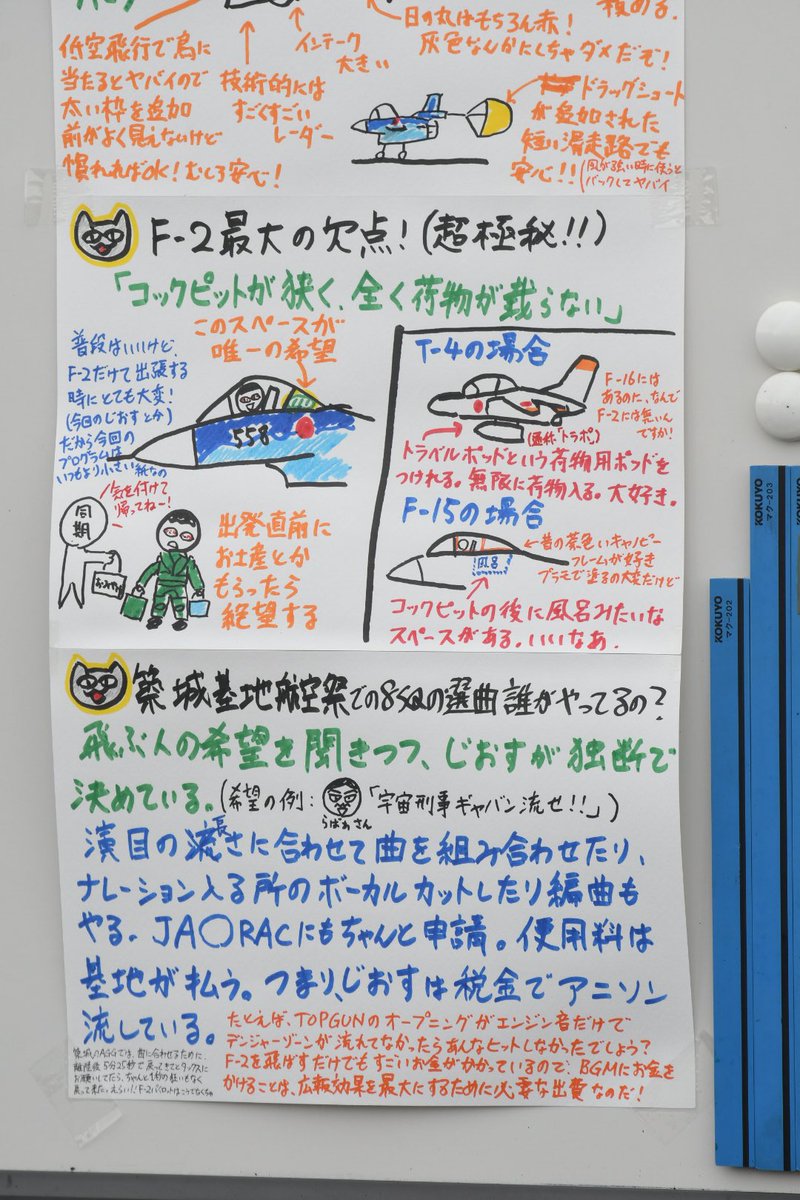 積める.
日の丸はもちろん赤!
灰色なんかにしちゃダメだぞ!
インテーク
大きい
低空飛行で鳥に
当たるとヤバイので
太い枠を追加
前がよく見えないけど
慣れればOK!むしろ安心!
技術的には
すごくすごい
レーダー
ドラッグシュート
が追加された
短い滑走路でも
安心!!
(風が強い時に使うと
バックしてヤバイ
F-2最大の欠点!(超極秘!!)
「コックピットが狭く、全く荷物が載らない」
普段はいいけど、
F-2だけで出張する
時にとても大変!
(今回のじおすとか)
だから今回の
プログラムは
いつもより小さい紙なの
このスペースが
唯一の希望
558
気を付けて
帰ってねー!
同期
おみやげ
出発直前に
お土産とか
もらったら
絶望する
T-4の場合
F-16には
あるのに、なんで
F-2には無いん
ですか!
(通称トラポ)
トラベルポッドという荷物用ポッドを
つけれる。無限に荷物入る。大好き。
F-15の場合
←昔の茶色いキャノピー
フレームが好き
プラモで塗るの大変だけど
風呂
コックピットの後に風呂みたいな
スペースがある。いいなぁ.
築城基地航空祭での8SQの選曲誰がやってるの?
飛ぶ人の希望を聞きつつ、じおすが独断で
決めている。(希望の例: 「宇宙刑事ギャバン流せ!!」)
らばぁさん
演目の長さに合わせて曲を組み合わせたり、
ナレーション入る所のボーカルカットしたり編曲も
やる、JA〇RACにもちゃんと申請。使用料は
基地が払う。つまり、じおすは税金でアニソン
流している。
たとえば、TOPGUNのオープニングがエンジン音だけで
デンジャーゾーンが流れてなかったらあんなヒットしなかったでしょう?
F-2を飛ばすだけでもすごいお金がかかっているので、BGMにお金を
かけることは、広報効果を最大にするために必要な出費なのだ!
築城のAGGでは、曲に合わせるために、
離陸後5分25秒で戻ってきてとラックスに
お願いしてたら、ちゃんと1秒の狂いもなく
戻って来た。えらい!F-2パイロットはこうでなくちゃ。
KOKUYO
マク-202
KOKUYO
マク-203